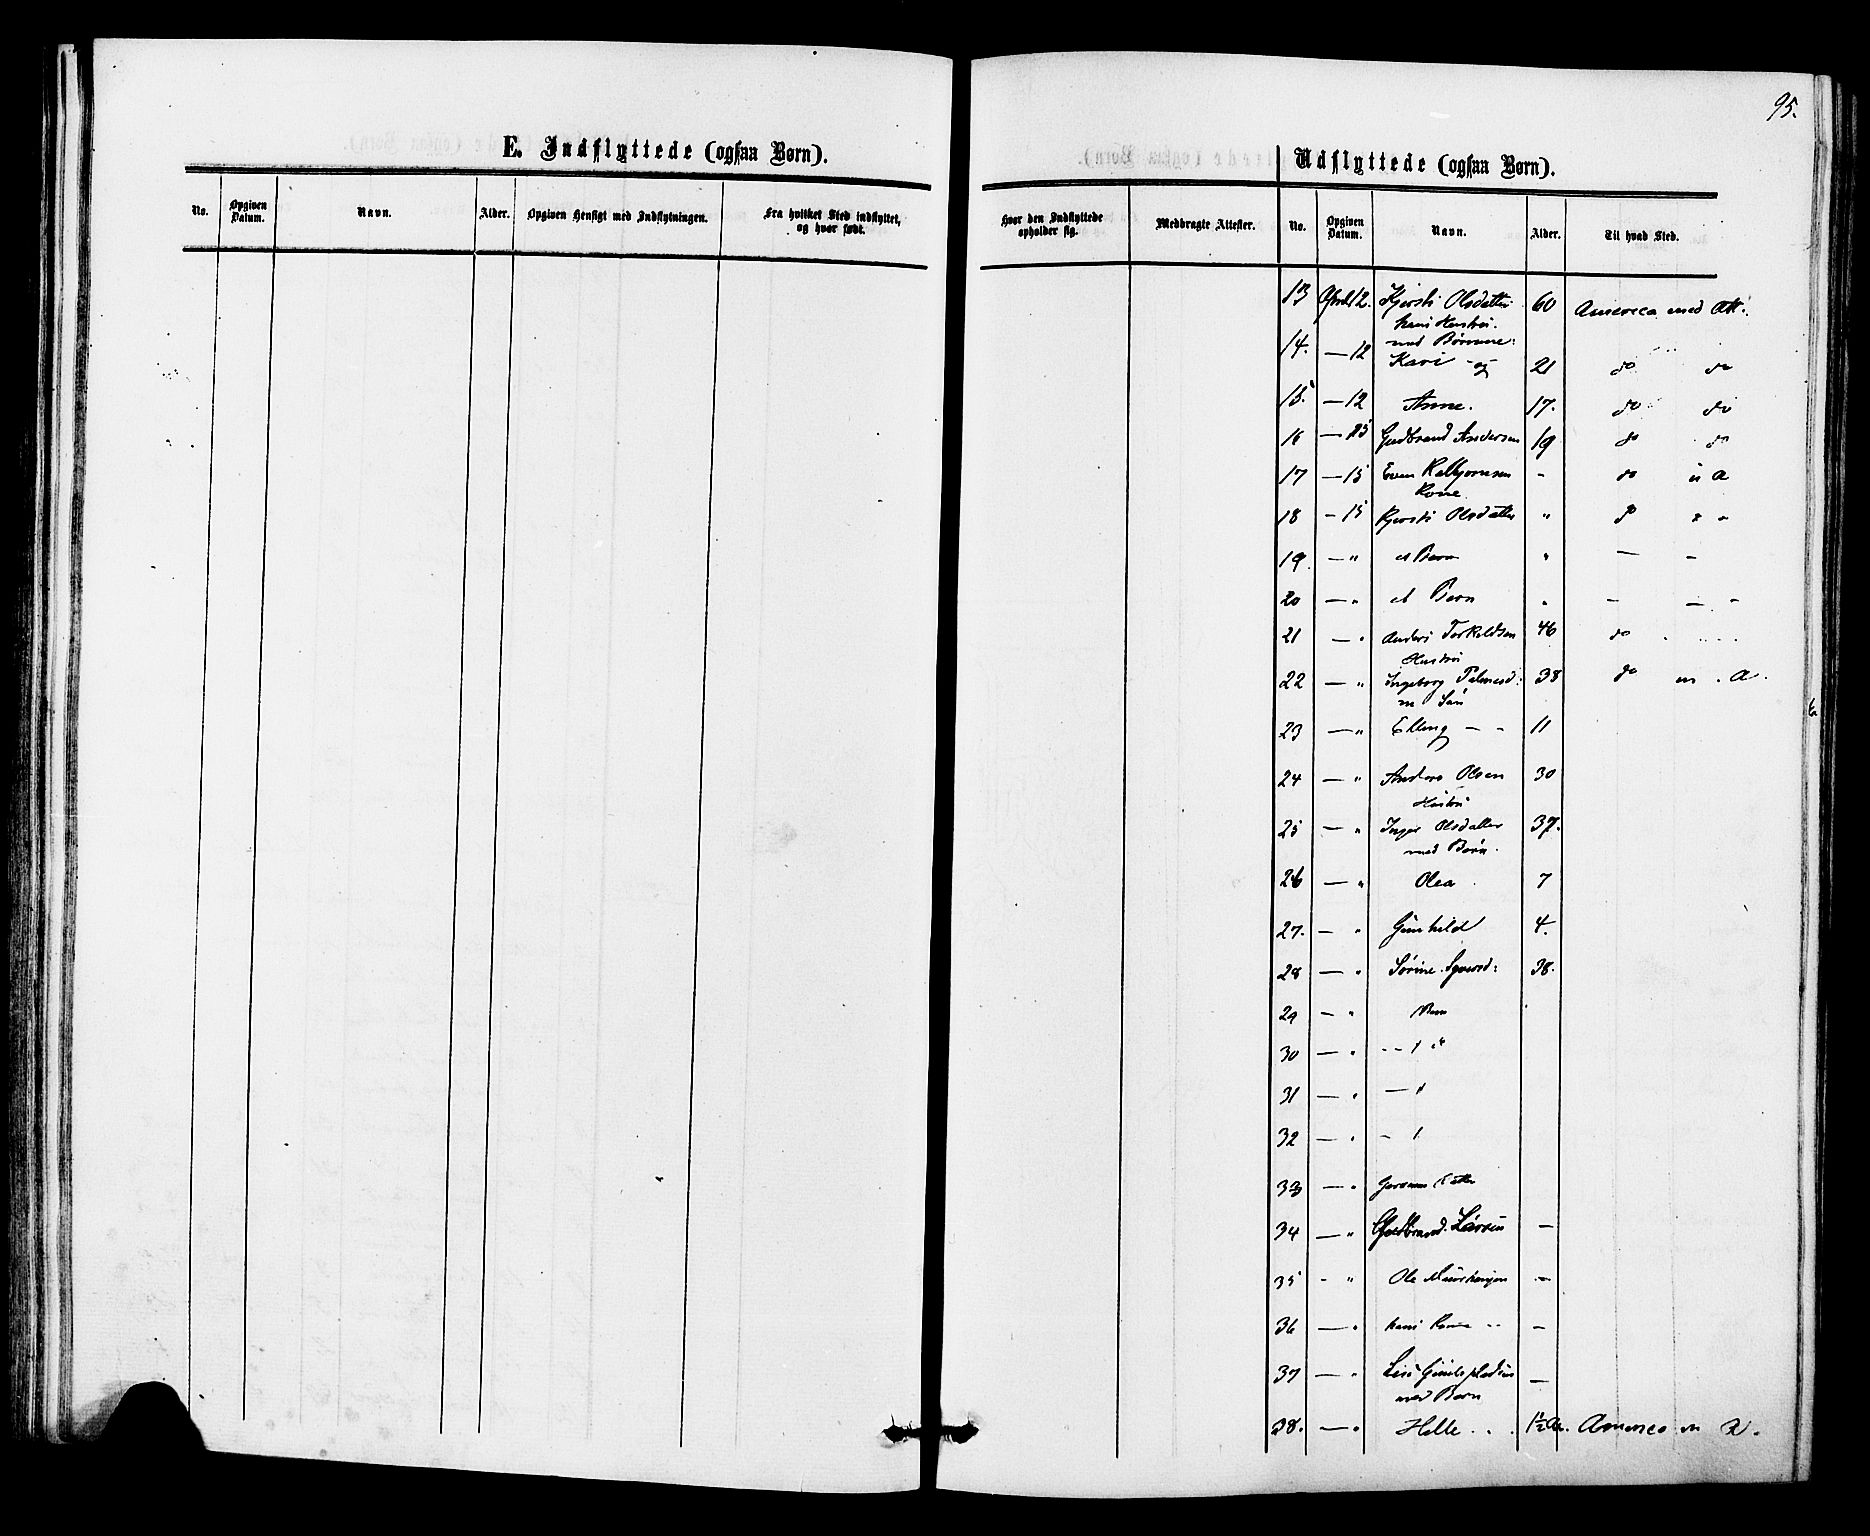 95.
E. Indflyttede (ogsaa Børn).
No. Opgiven Datum. Navn. Alder. Opgiven Hensigt med Indflytningen. Fra hvilket Sted indflyttet, og hvor født.
Udflyttede (ogsaa Børn).
Hvor den Indflyttede opholder sig. Medbragte Attester. No. Opgiven Datum. Navn. Alder. Til hvad Sted.
13 April 12. Kjersti Olsdatter 60 America med Att:
hans Hustru.
med Børnene:
14. — 12 Kari - og 21 do do
15. — 12 Anne. 17. do do
16 — 15 Gudbrand Andersen 19 do do
17 — 15 Even - do m A
18 - 15 Kjersti Olsdatter " do " "
19. — " et Barn " — -
20 — " et Barn " — — -
21 — " Anders Torkildsen 46 do
Hustru
22 — " Ingeborg 38 do m . A.
m Søn
23 — " Elling - - 11
24 — " Anders Olsen 30
Hustru
25 — " Inger Olsdatter 37.
med Børn.
26 — " Olea 7
27. — " Gunhild 4.
28 — " Sørine 38.
29 — " 1 Barn
30 — " - - 1 "
31 — " — 1
32 — " - 1
33 — "
34 — " Gudbrand Larsen —
35 - " Ole —
36 — " hans -
37 — " —
med Barn
38. — " Helle . . 1½ Aar. America m A.